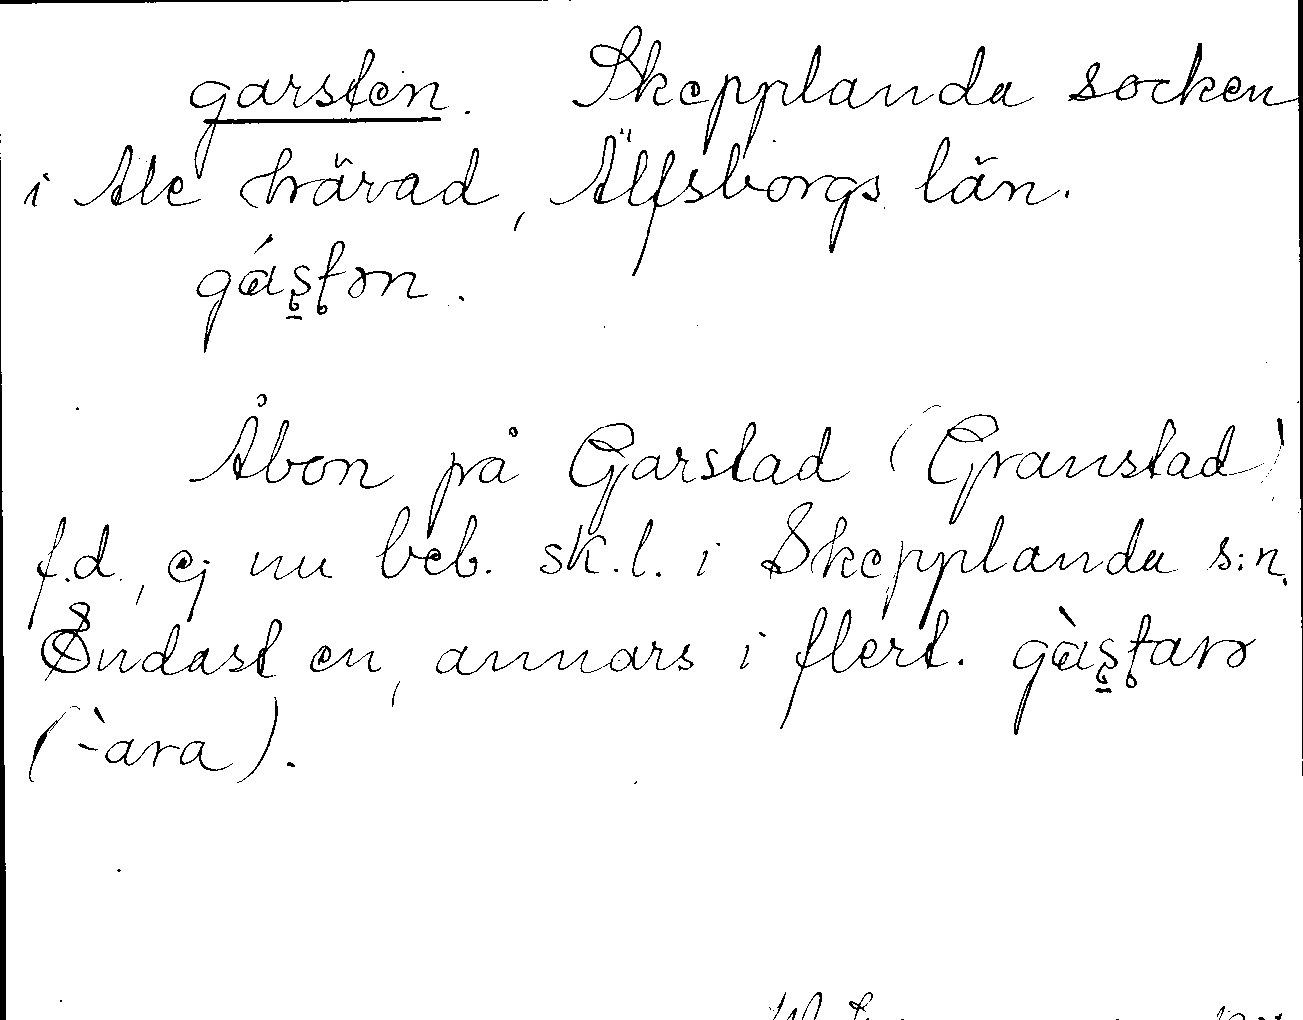 garsten. Skepplanda socken
i Ale härad, Älfsborgs län.
gás̱tən.
Åbon på Garstad (Granstad)
f.d., ej nu beb. sk.l. i Skepplanda s:n.
Endast en, annars i flert. gàs̱tarə
(`-ara).